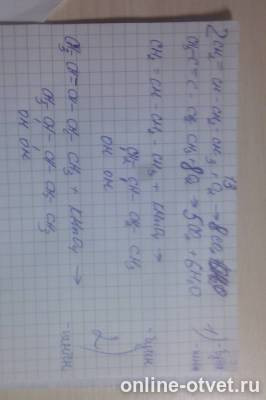 2CH₂=CH-CH₂-CH₃ + O₂ → 8CO₂
13
CH₃-C≡C-CH₂-CH₃ + 8O₂ → 5CO₂ + 6H₂O
1)
CH₂=CH-CH₂-CH₃ + KMnO₄ →
CH₂-CH-CH₂-CH₃
OH OH
2)
CH₃-CH=CH-CH₂-CH₃ + KMnO₄ →
CH₃-CH-CH-CH₂-CH₃
OH OH
online-otvet.ru